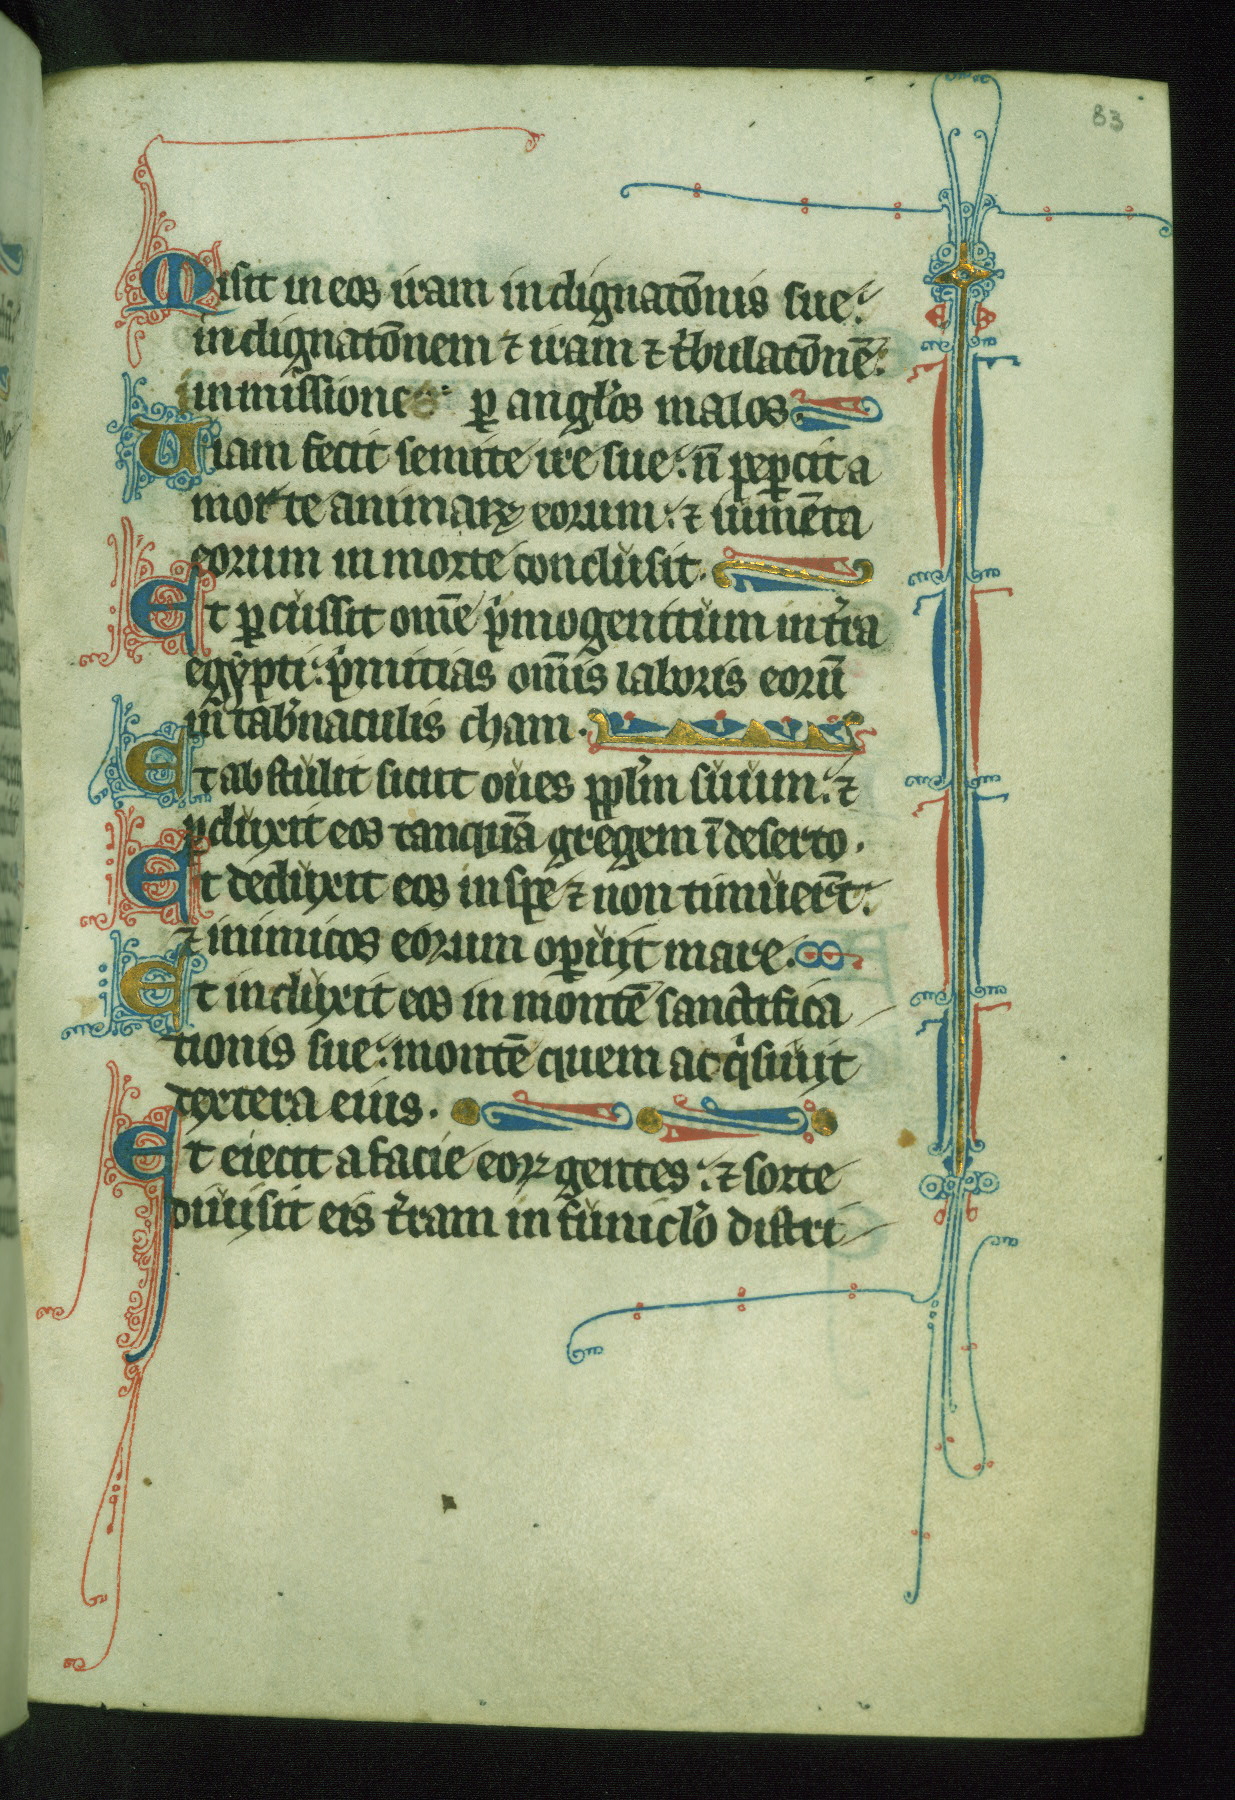 83
Misit in eos iram indignatōnis sue:
indignatōnem ⁊ iram ⁊ t'bulatōnē:
inmissione ꝑ angl'os malos.
Uiam fecit semite ire sue: n̄ peꝑcit a
morte animaꝝ eorum: ⁊ iumēta
eorum in morte conclusit.
Et ꝑcussit om̄e p'mogenitum in t'ra
egypti: p'mitias om̄is laboris eorū
in tab'naculis cham.
Et abstulit sicut oues ppl'm suum: ⁊
ꝑduxit eos tanquā gregem ī deserto.
Et deduxit eos in spe ⁊ non timuer̄t:
⁊ inimicos eorum oꝑuit mare.
Et induxit eos in montē sanctifica
tionis sue: montē quem acq'siuit
dextera eius.
Et eiecit a facie eoꝝ gentes: ⁊ sorte
diuisit eis t'ram in funicl'o distri